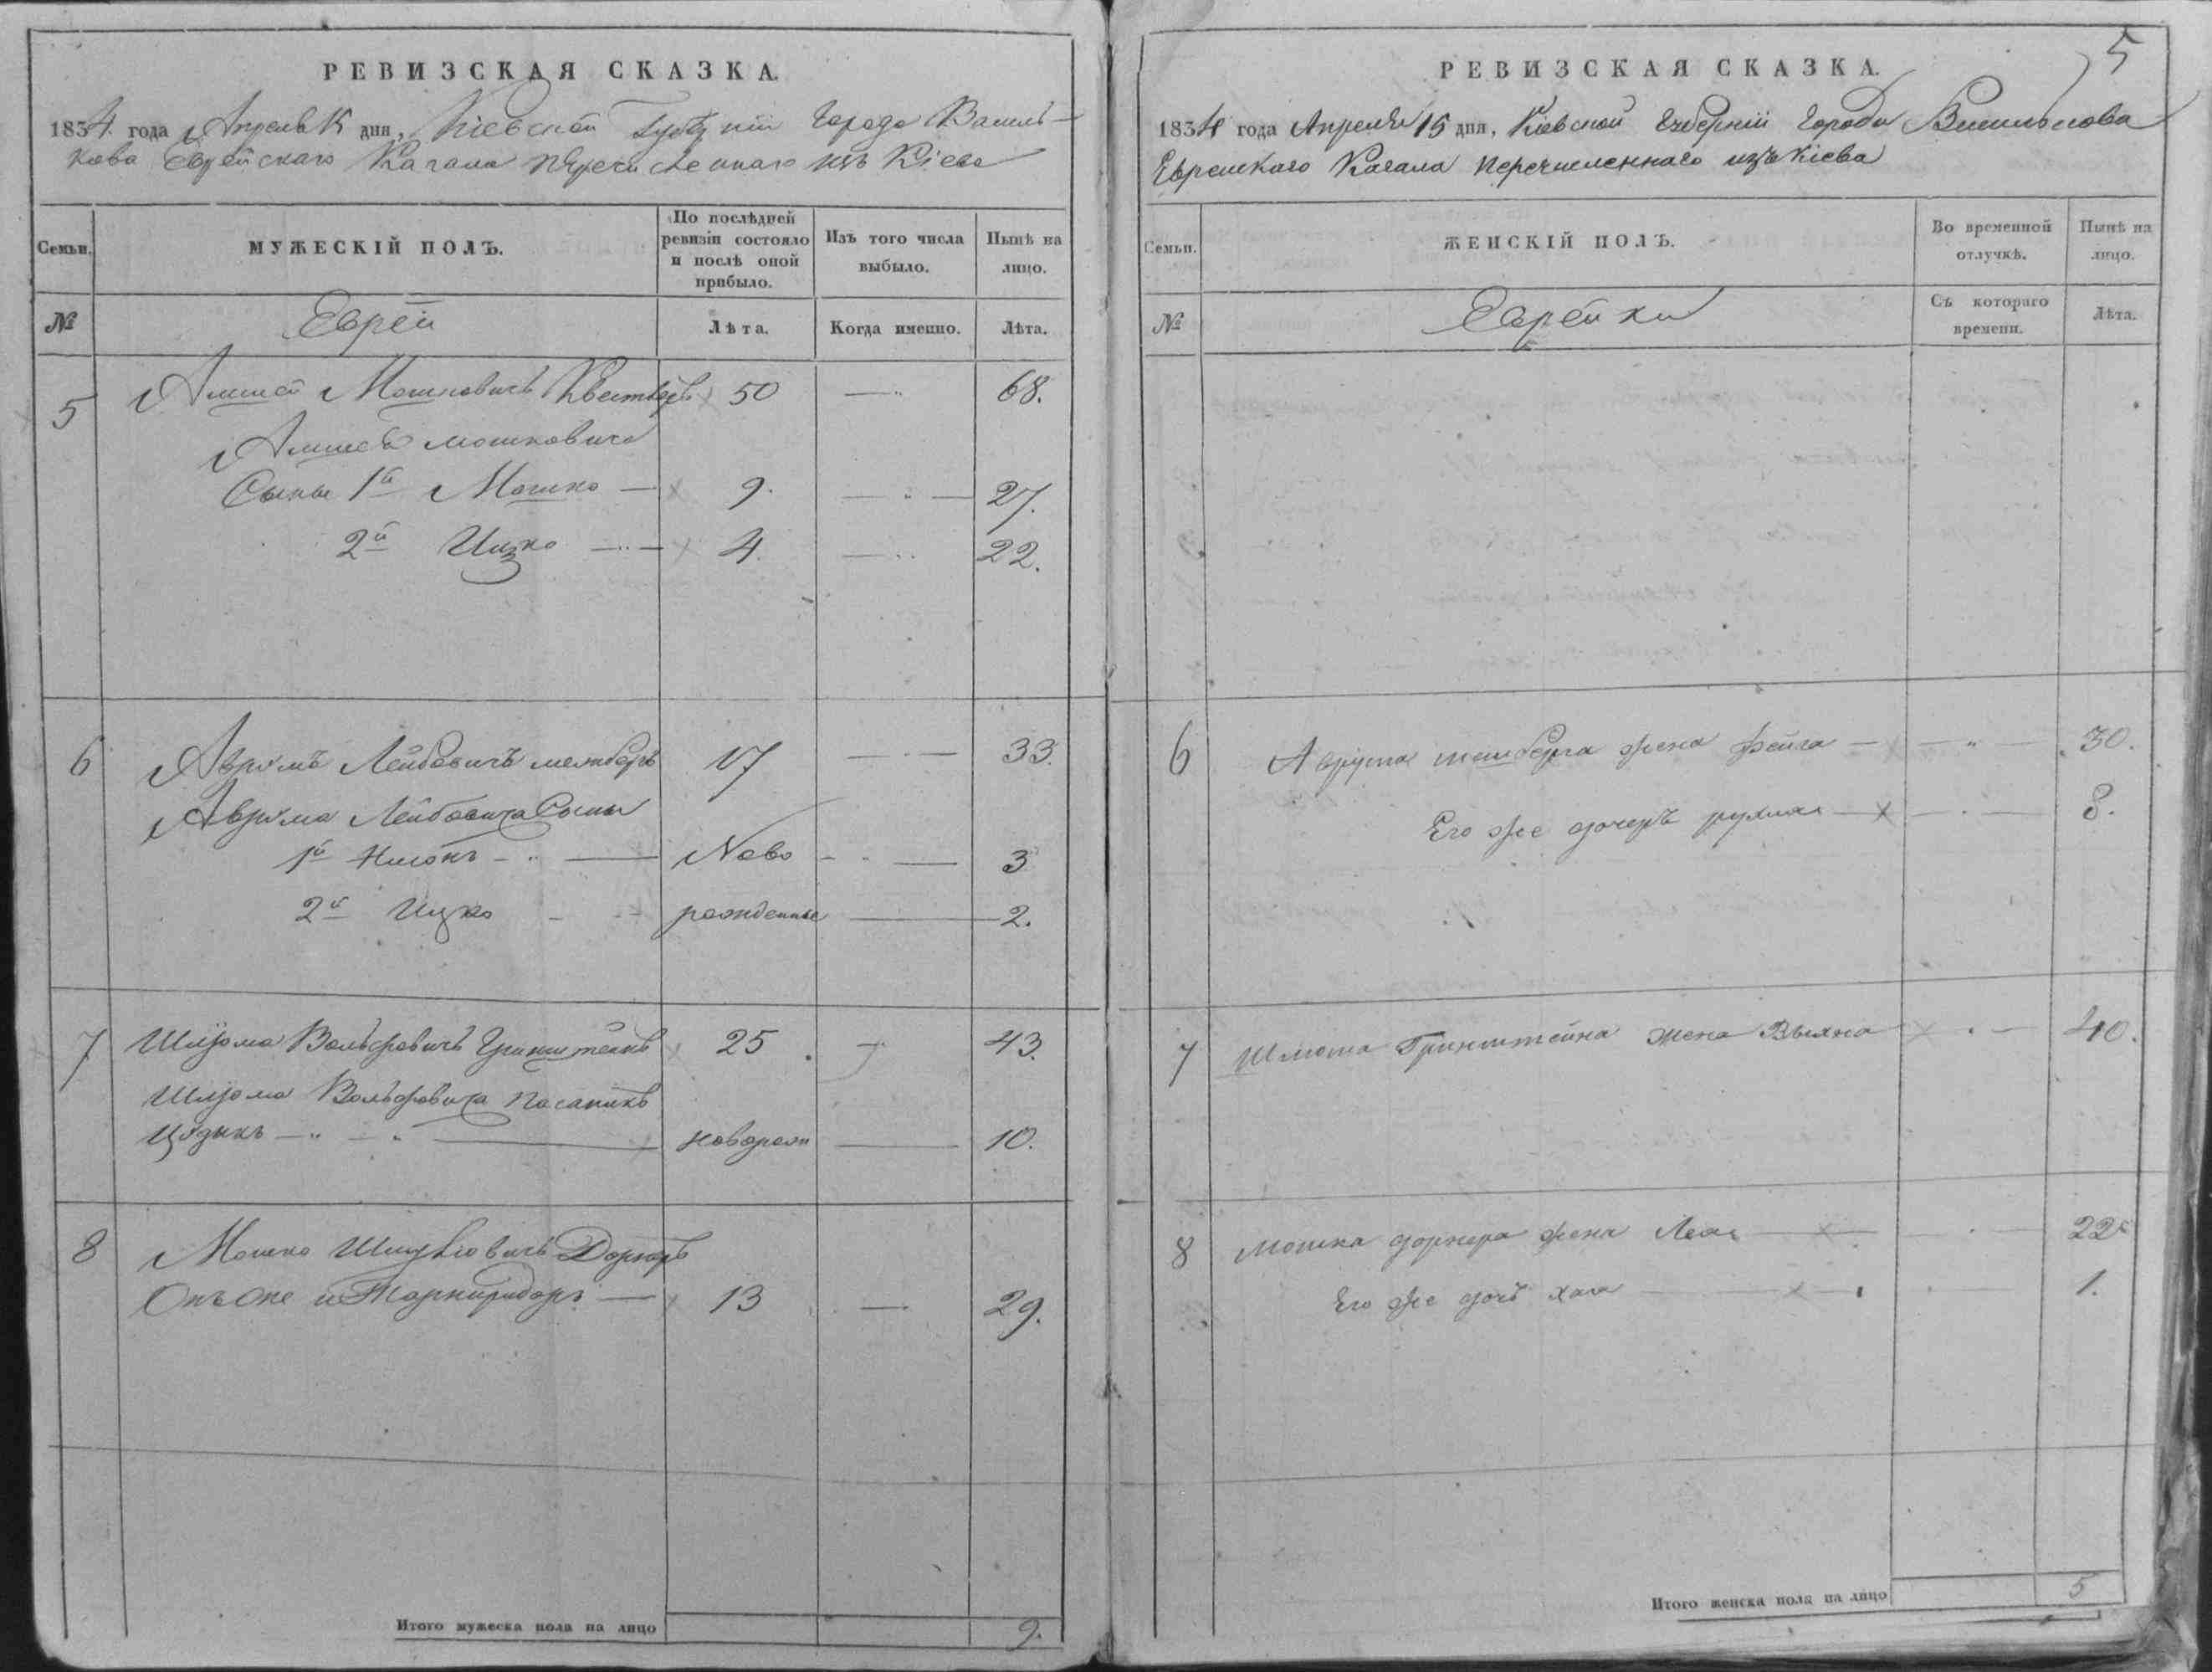 РЕВИЗСКАЯ СКАЗКА.
1834 года Апреля 15 дня, Кіевской Губерніи Города Василь-
кова Еврейскаго Кагала перечисленнаго изъ Кіева
Семьи.
МУЖЕСКІЙ ПОЛЪ.
По послѣдней ревизіи состояло и послѣ оной прибыло.
Изъ того числа выбыло.
Нынѣ на лицо.
№
Еврей
Лѣта.
Когда именно.
Лѣта.
5 Мошковичъ 50 — 68.
Мошковича
Сыны 1й Мошко — 9. — 27.
2й Ицко — 4. — 22.
6 Аврумъ Лейбовичъ 17 — 33.
Аврума Лейбовича Сыны
1й — Ново — 3
2й Ицко рожденные — 2.
7 Шлиома Вольфовичъ Гринштейнъ 25. 43.
Шлиома Вольфовича пасынкъ
новорож — 10.
8 Мошко Дорнеръ
Онъ же и — 13 — 29.
Итого мужеска пола на лицо 9.
5
РЕВИЗСКАЯ СКАЗКА.
1834 года Апреля 15 дня, Кіевской Губерніи Города Василькова
Еврейскаго Кагала перечисленнаго изъ Кіева
Семьи.
ЖЕНСКІЙ ПОЛЪ.
Во временной отлучкѣ.
Нынѣ на лицо.
№
Еврейки
Съ котораго времени.
Лѣта.
6 Аврума жена Фейга — 30.
Его же дочерь рухля — 8.
7 Шлиома Гринштейна жена — 40.
8 Мошка дорнера жена Лея — 22
Его же дочь хая — 1.
Итого женска пола на лицо 5